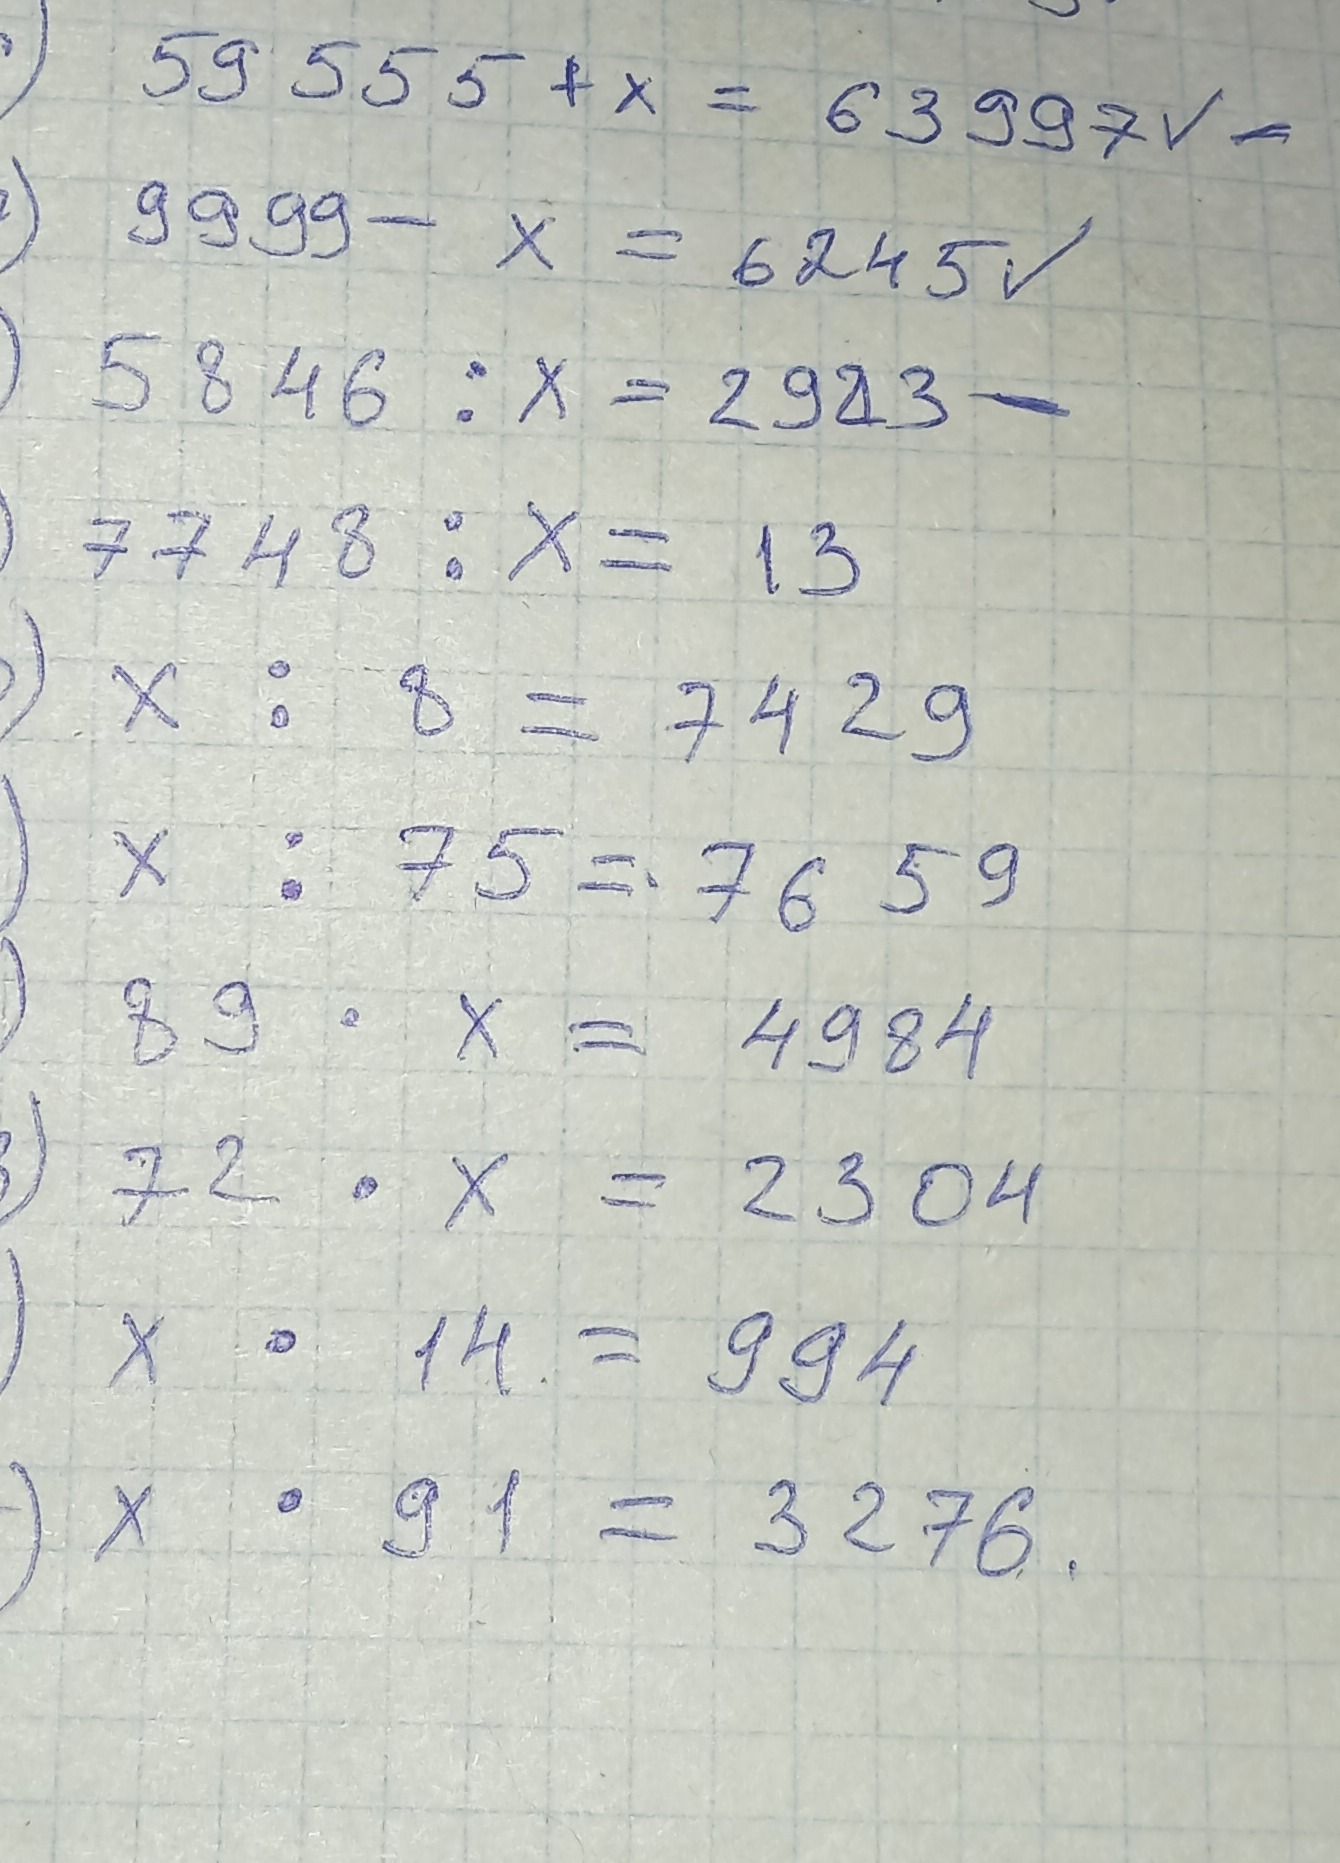 ) 59555 + x = 63997 ✓ -
) 9999 - x = 6245 ✓
) 5846 : x = 2923 -
) 7748 : x = 13
) x : 8 = 7429
) x : 75 = 7659
) 89 · x = 4984
) 72 · x = 2304
) x · 14 = 994
) x · 91 = 3276.